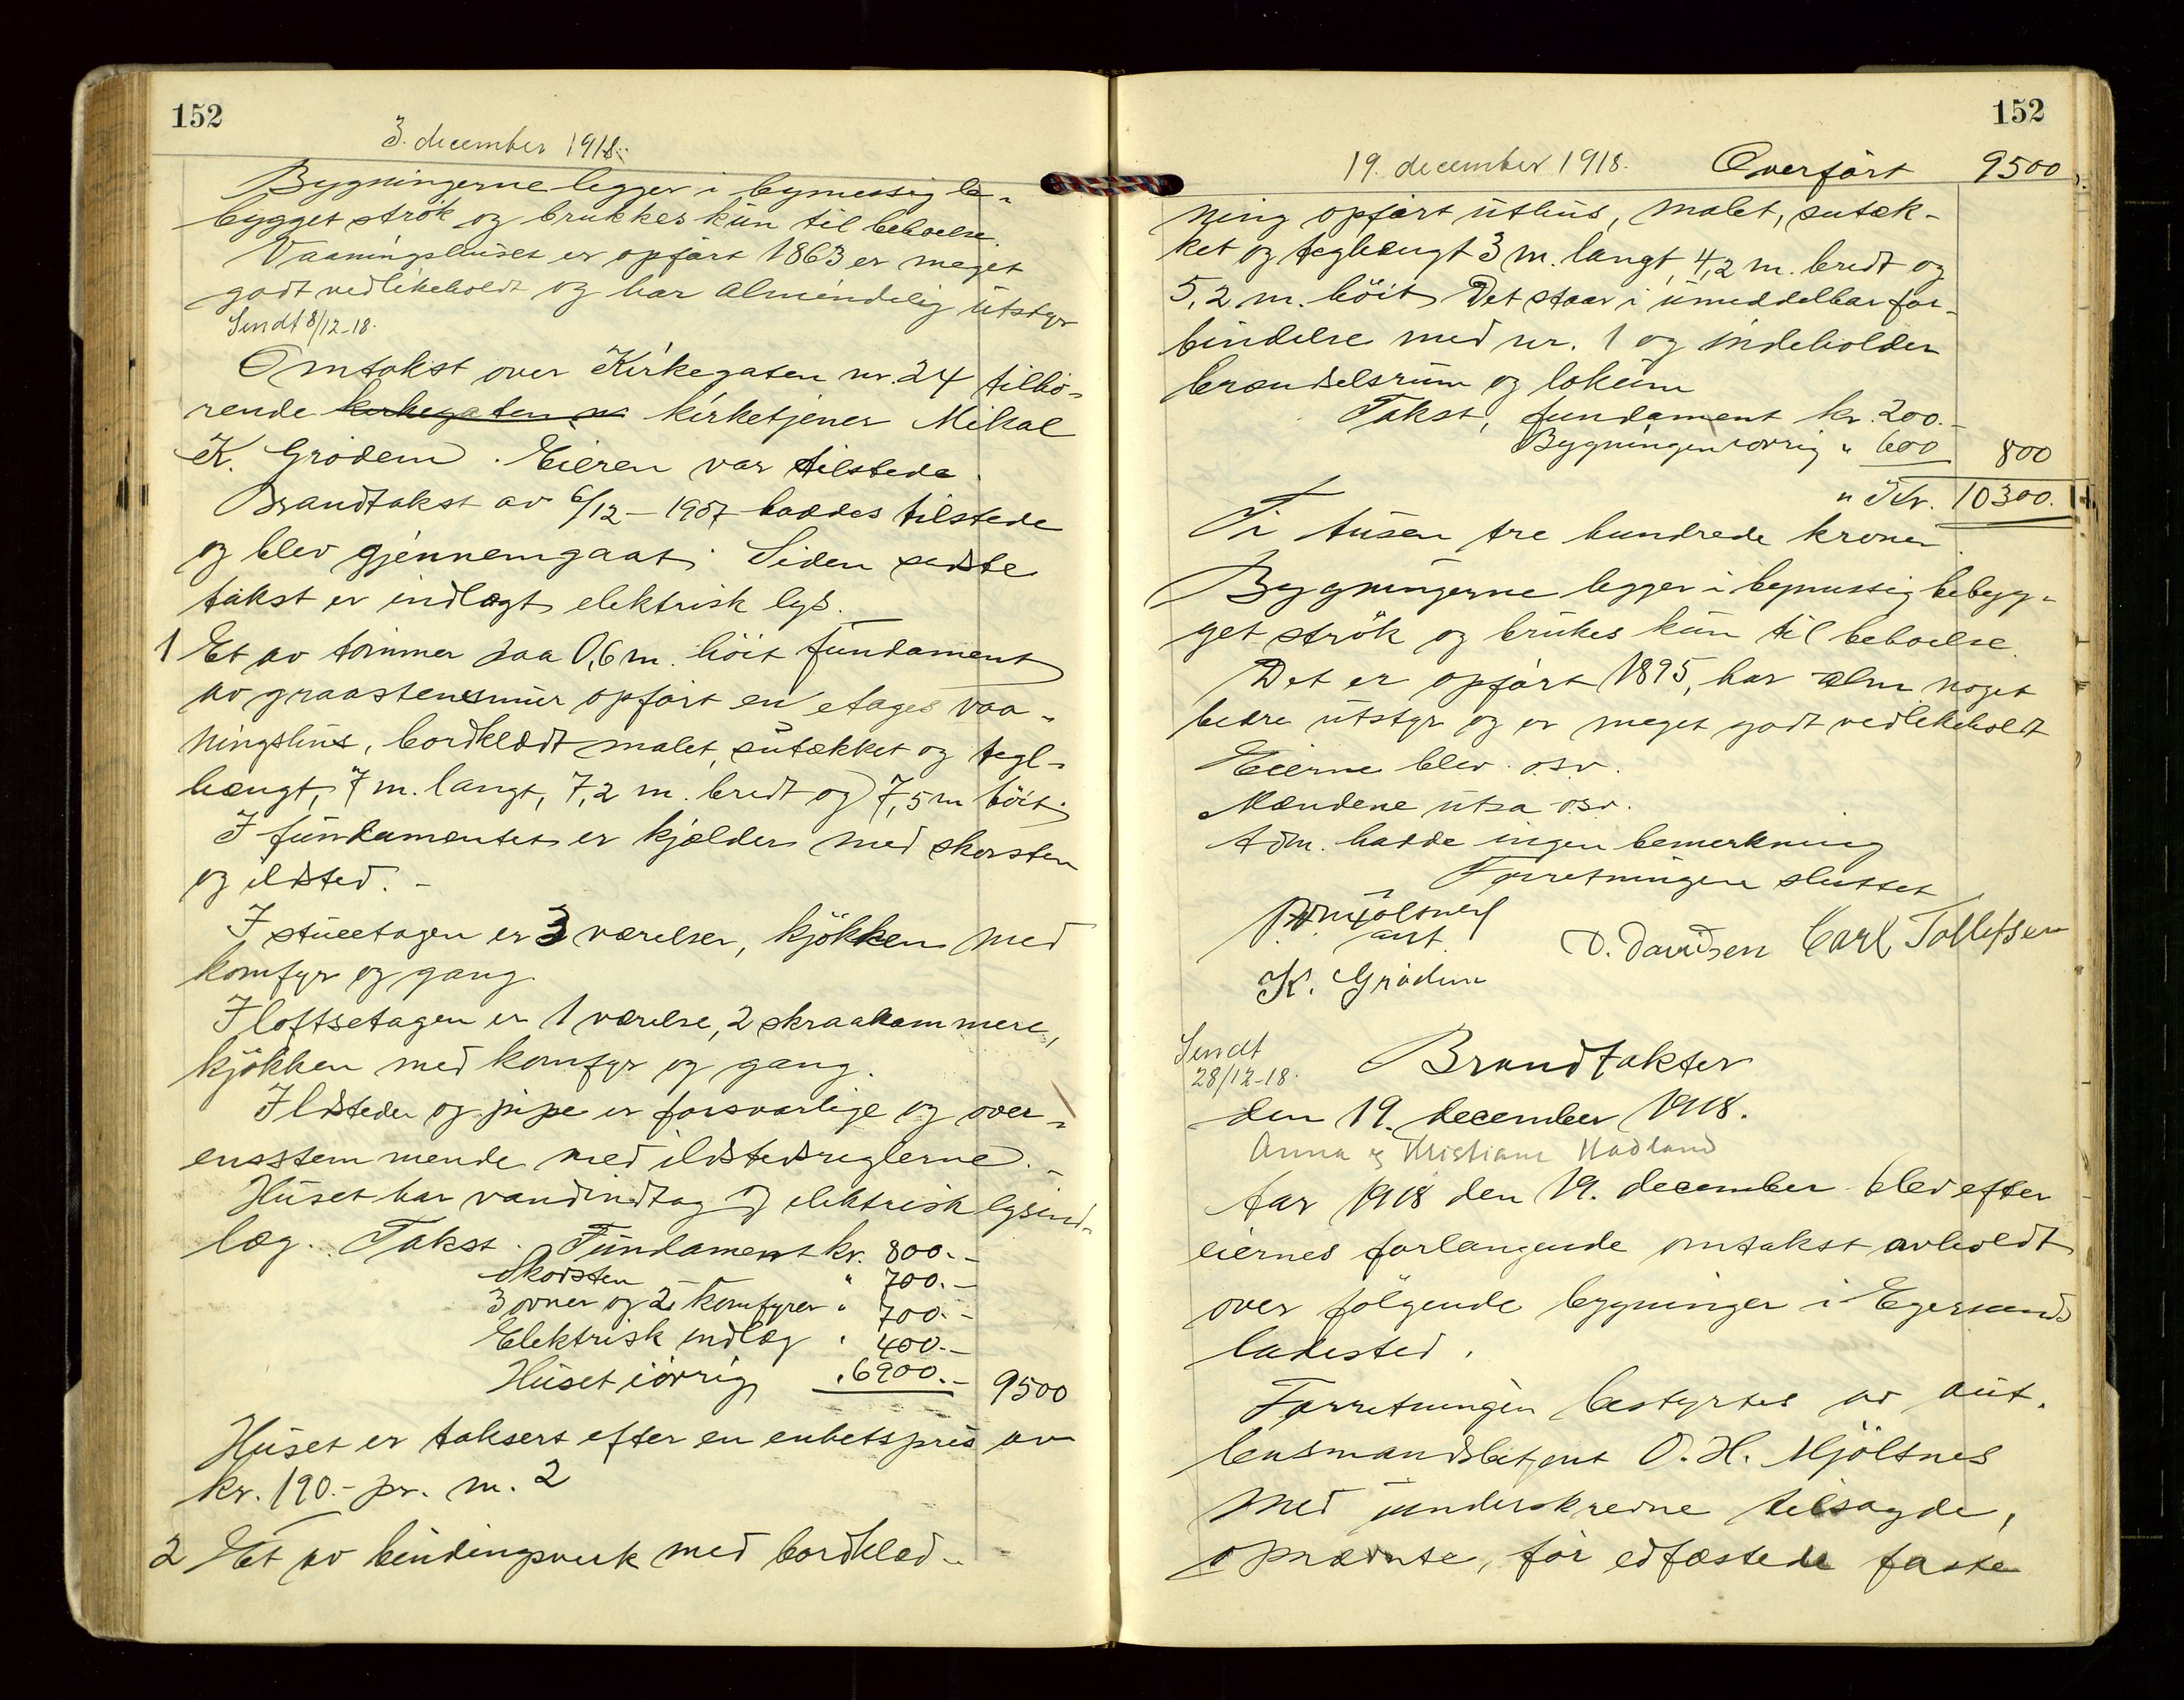 152
3. december 1918.
Bygningerne ligger i bymessig be-
bygget strøk og brukkes kun til beboelse.
Vaaningshuset er opført 1863 er meget
godt vedlikeholdt og har almindelig utstyr
Sendt 8/12-18.
Omtakst over Kirkegaten nr. 24 tilhø-
rende kirkegaten n kirketjener Mikal
K. Grødem. Eieren var tilstede.
Brandtakst av 6/12-1907 haddes tilstede
og blev gjennemgaat. Siden sidste
takst er indlagt elektrisk lys.
1 Et av tømmer paa 0,6 m. høit fundament
av graastensmur opført en etages vaa-
ningshus, bordklædt malet, sutækket og tegl-
hængt, 7 m. langt, 7,2 m. bredt og 7,5 m høit.
I fundamentet er kjælder med skorsten
og ildsted. -
I stueetagen er 3 værelser, kjøkken med
komfyr og gang.
I loftsetagen er 1 værelse, 2 skraakammere,
kjøkken med komfyr og gang.
Ildsteder og pipe er forsvarlige og over-
ensstemmende med ildstedsreglerne. -
Huset har vandindtag og elektrisk lysind-
læg. Takst. Fundament kr. 800.-
Skorsten " 700.-
3 ovner og 2 komfyrer " 700.-
Elektrisk indlæg " 400.-
Huset iøvrig " 6900.- 9500
Huset er taksert efter en enhetspris av
kr. 190.- pr. m. 2
2 Et av bindingsverk med bordklæd-
152
19. december 1918. Overført 9500
ning opført uthus, malet, sutæk-
ket og teglhængt 3 m. langt, 4,2 m. bredt og
5,2 m. høit. Det staar i umiddelbar for-
bindelse med nr. 1 og indeholder
brændselsrum og lokum
Takst, fundament kr. 200.-
Bygningen iøvrig " 600 800
" Kr. 10300.
Ti tusen tre hundrede kroner
Bygningerne ligger i bymessig bebyg-
get strøk og brukes kun til beboelse.
Det er opført 1895, har alm noget
bedre utstyr og er meget godt vedlikeholdt
Eierne blev. o.s.v.
Mændene utsa o.s.v.
Adm. hadde ingen bemerkning
Forretningen sluttet
Mjølsnes
aut.
O. Davidsen Carl Tollefsen
K. Grødem
Sendt
28/12-18.
Brandtakter
den 19. december 1918.
Anna og Kristiane Hadland
Aar 1918 den 19. december blev efter
eiernes forlangende omtakst avholdt
over følgende bygninger i Egersunds
ladested.
Forretningen bestyrtes av aut.
lensmandsbetjent O. H. Mjølsnes
med underskrevne tilsagde,
opnævnte, før edfæstede faste